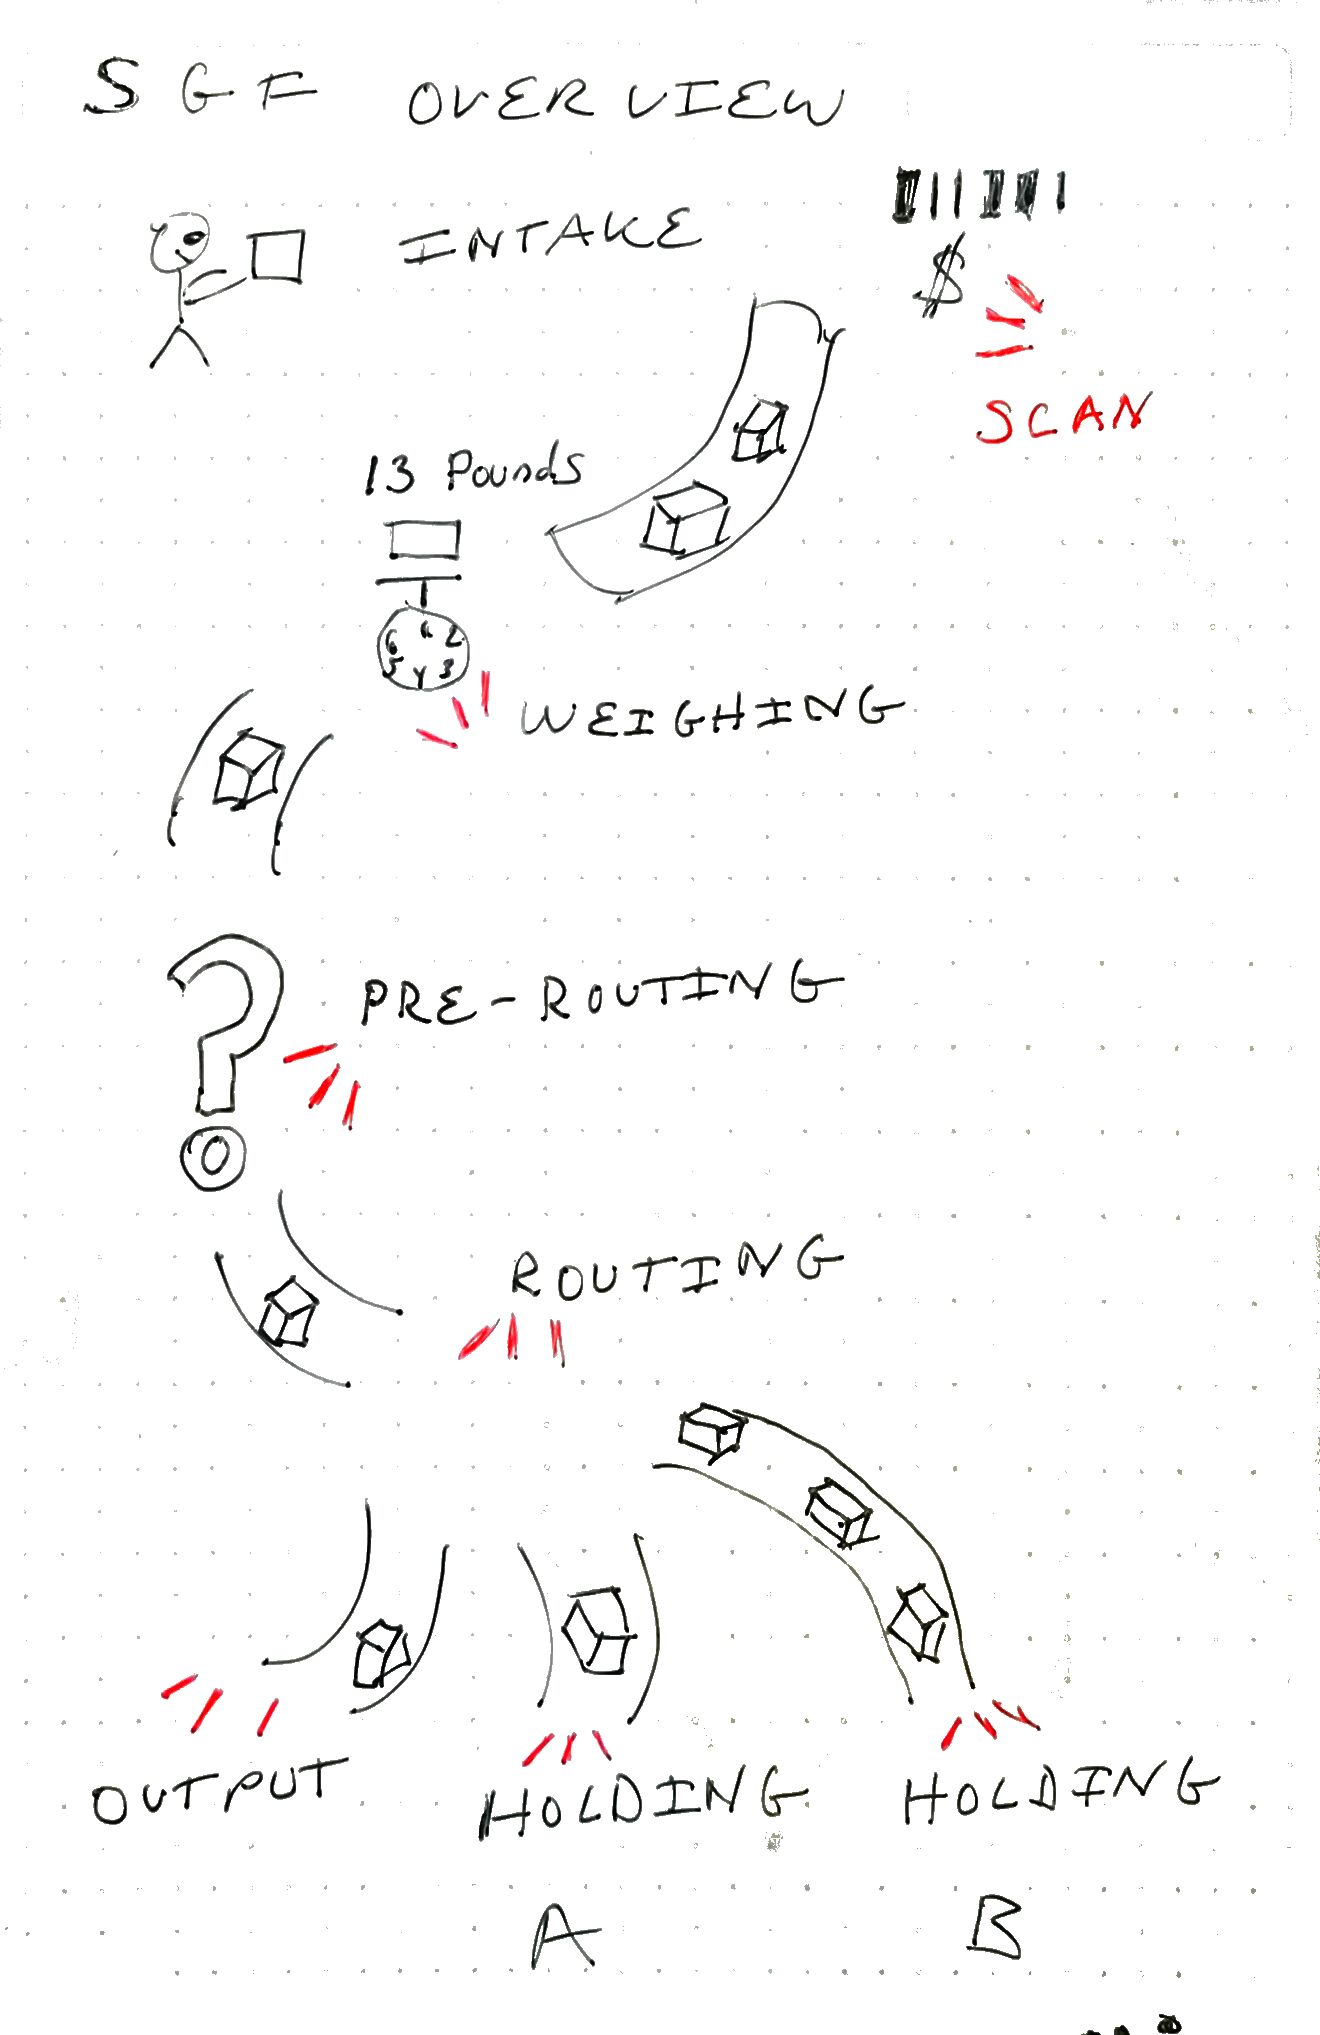 SGF OVERVIEW
INTAKE
$
SCAN
13 Pounds
6 2
5 4 3
WEIGHING
?
PRE-ROUTING
ROUTING
OUTPUT
HOLDING
A
HOLDING
B